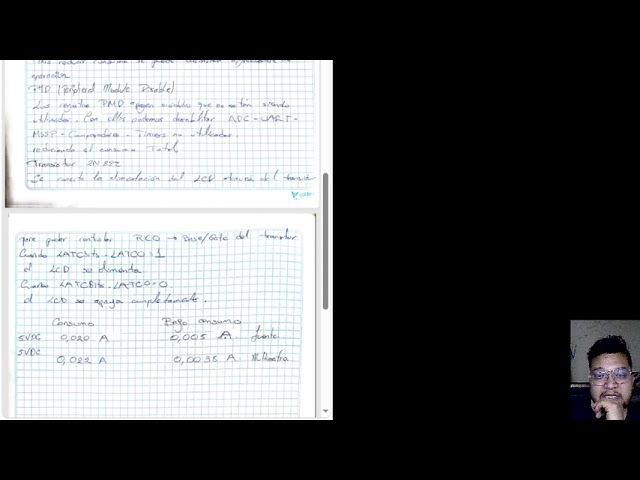 operación
PMD (Peripheral Module Disable)
Los registros PMD apagan módulos que no están siendo
utilizados. Con ellos podemos deshabilitar ADC - UART -
MSSP - Comparadores - Timers no utilizados.
reduciendo el consumo Total,
Transistor 2N222
Se conecta la alimentación del LCD através del transist
para poder controlar RCO → Base/Gate del transistor
Cuando LATCbits.LATC0=1
el LCD se alimenta
Cuando LATCBits.LATC0=0
el LCD se apaga completamente.
Consumo Bajo consumo
5VDC 0,020 A 0,005 A fuente
5VDC 0,022 A 0,0038 A Multimetro